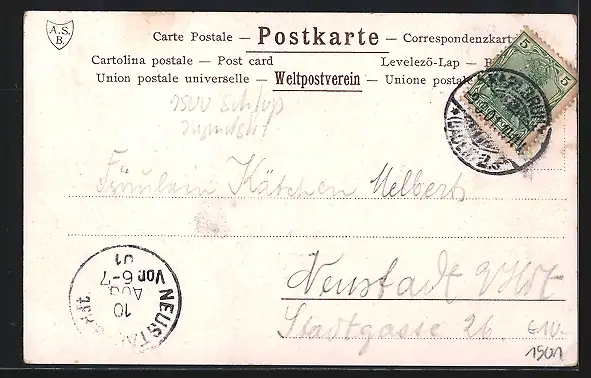 A.S.
B.
Carte Postale — Postkarte — Correspondenzkart
Cartolina postale — Post card Levelező-Lap — B
Union postale universelle — Weltpostverein — Unione postale
5 5
Fräulein Kätchen Melbert
Neustadt
Stadtgasse 26.
NEUSTA
10
AUG.
Vor. 6-7
01
1501